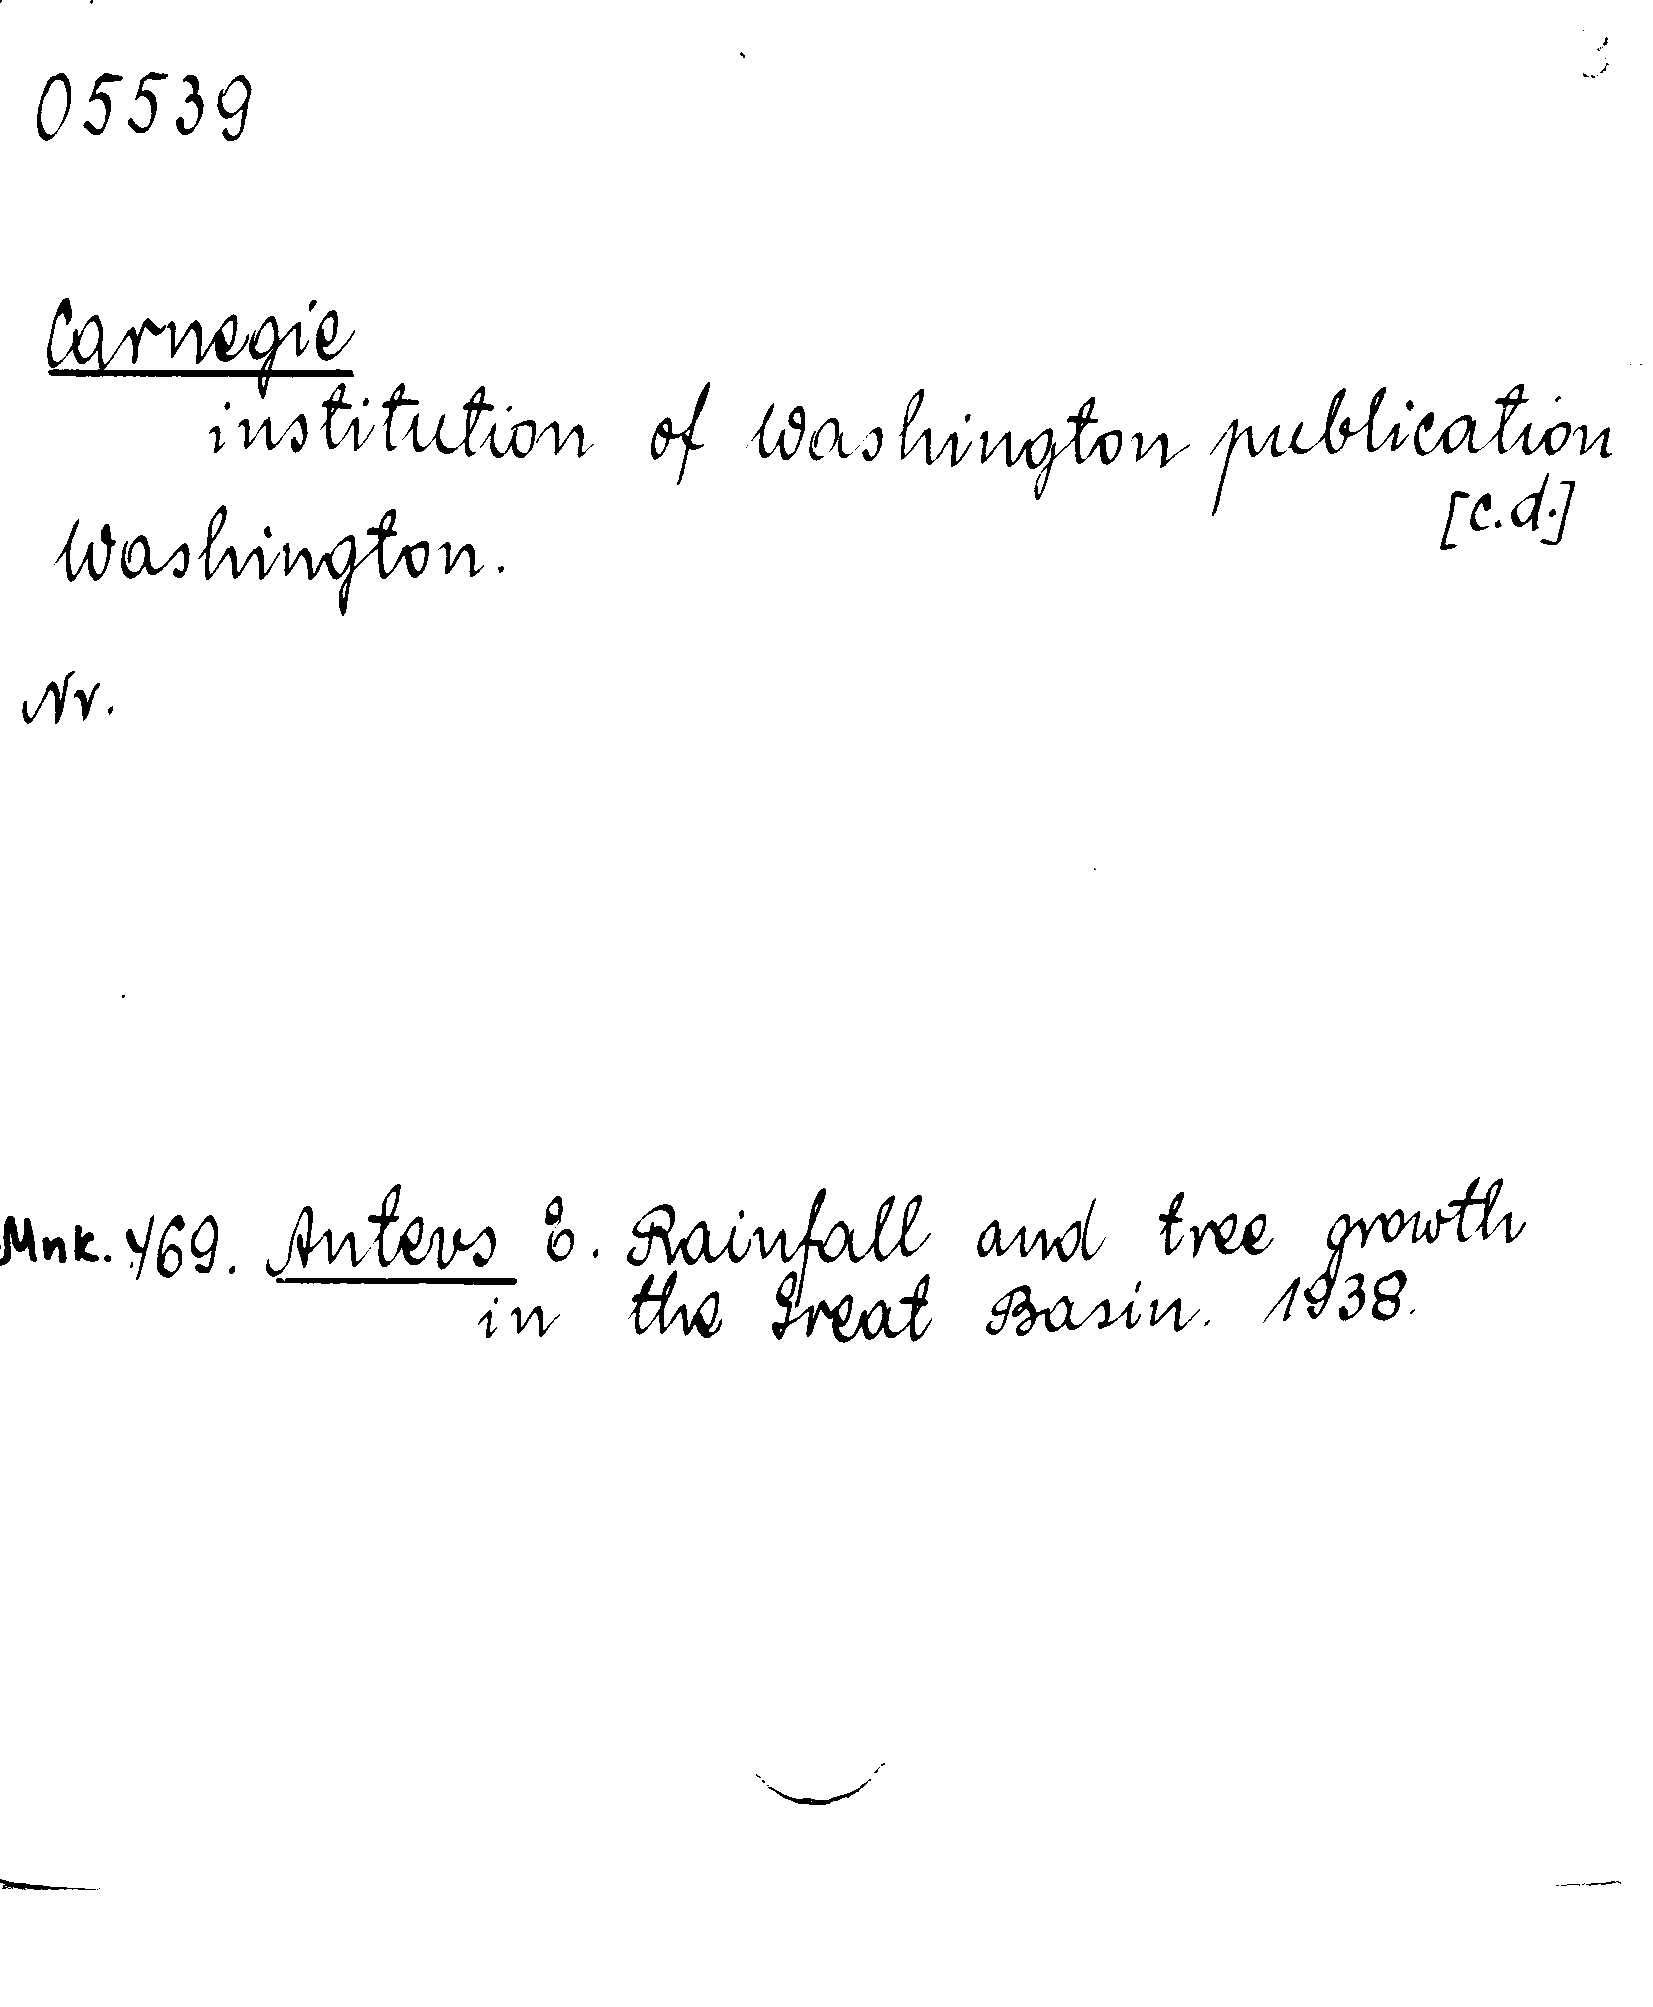 05539
Carnegie
institution of Washington publication
[c.d.]
Washington.
Nr.
Mnk. 469. Antevs E. Rainfall and tree growth
in the Great Basin. 1938.